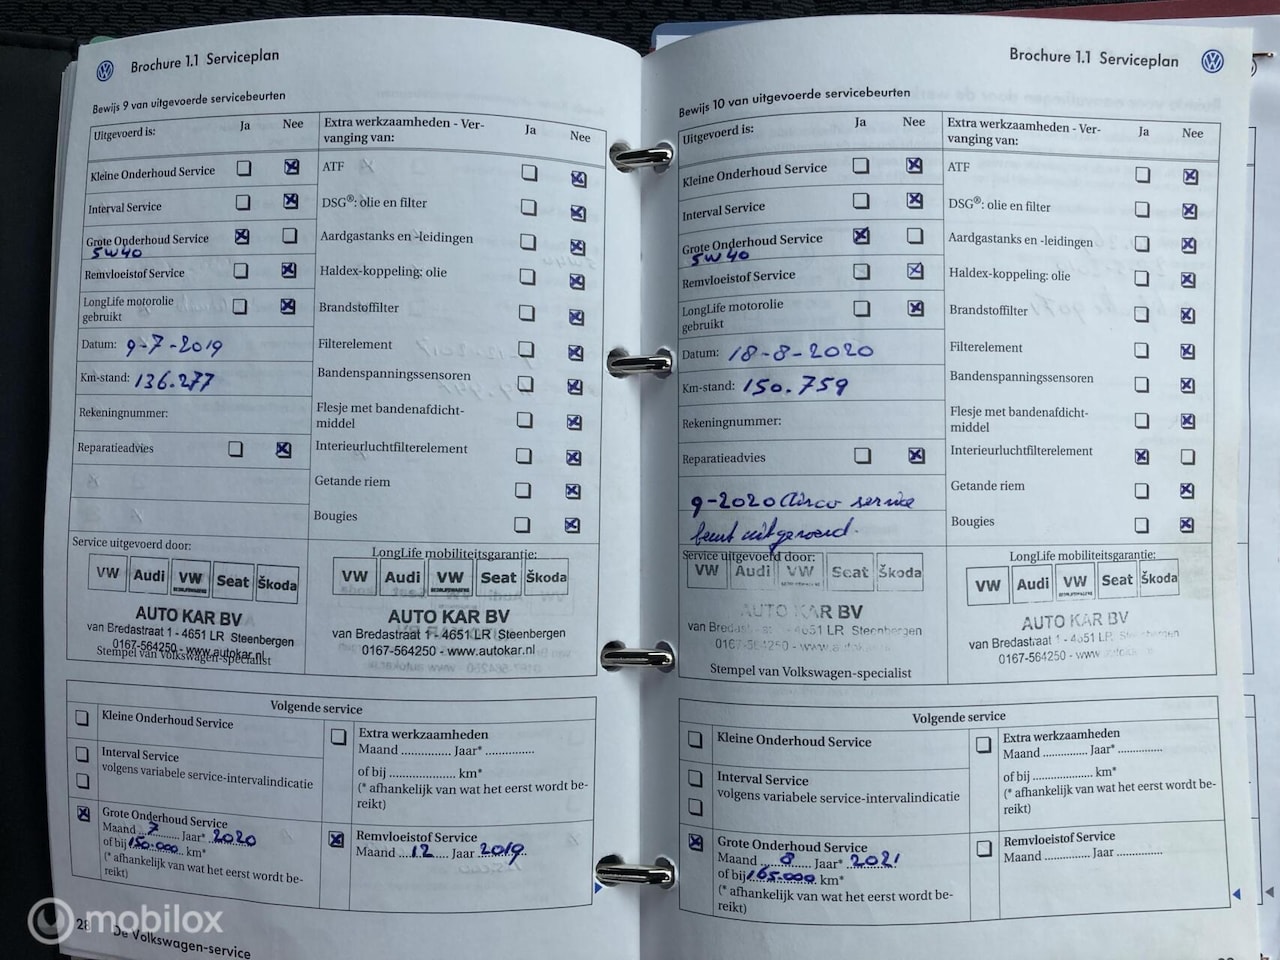 Brochure 1.1 Serviceplan
Bewijs 9 van uitgevoerde servicebeurten
Uitgevoerd is: Ja Nee
Kleine Onderhoud Service
Interval Service
Grote Onderhoud Service
5W40
Remvloeistof Service
LongLife motorolie
gebruikt
Datum: 9-7-2019
Km-stand: 136.277
Rekeningnummer:
Reparatieadvies
Extra werkzaamheden - Ver-
vanging van: Ja Nee
ATF
DSG®: olie en filter
Aardgastanks en -leidingen
Haldex-koppeling: olie
Brandstoffilter
Filterelement
Bandenspanningssensoren
Flesje met bandenafdicht-
middel
Interieurluchtfilterelement
Getande riem
Bougies
Service uitgevoerd door:
VW Audi VW Seat Škoda
AUTO KAR BV
van Bredastraat 1 - 4651 LR Steenbergen
0167-564250 - www.autokar.nl
Stempel van Volkswagen-specialist
LongLife mobiliteitsgarantie:
VW Audi VW Seat Škoda
AUTO KAR BV
van Bredastraat 1 - 4651 LR Steenbergen
0167-564250 - www.autokar.nl
Volgende service
Kleine Onderhoud Service
Interval Service
volgens variabele service-intervalindicatie
Grote Onderhoud Service
Maand ...7... Jaar* 2020
of bij 150.000 km*
(* afhankelijk van wat het eerst wordt be-
reikt)
Extra werkzaamheden
Maand .............. Jaar* ..............
of bij .................. km*
(* afhankelijk van wat het eerst wordt be-
reikt)
Remvloeistof Service
Maand ...12... Jaar 2019
28 De Volkswagen-service
Brochure 1.1 Serviceplan
Bewijs 10 van uitgevoerde servicebeurten
Uitgevoerd is: Ja Nee
Kleine Onderhoud Service
Interval Service
Grote Onderhoud Service
5W40
Remvloeistof Service
LongLife motorolie
gebruikt
Datum: 18-8-2020
Km-stand: 150.759
Rekeningnummer:
Reparatieadvies
9-2020 Airco service
beurt uitgevoerd.
Extra werkzaamheden - Ver-
vanging van: Ja Nee
ATF
DSG®: olie en filter
Aardgastanks en -leidingen
Haldex-koppeling: olie
Brandstoffilter
Filterelement
Bandenspanningssensoren
Flesje met bandenafdicht-
middel
Interieurluchtfilterelement
Getande riem
Bougies
Service uitgevoerd door:
VW Audi VW Seat Škoda
AUTO KAR BV
van Bredastraat 1 - 4651 LR Steenbergen
0167-564250 - www.autokar.nl
Stempel van Volkswagen-specialist
LongLife mobiliteitsgarantie:
VW Audi VW Seat Škoda
AUTO KAR BV
van Bredastraat 1 - 4651 LR Steenbergen
0167-564250 - www.autokar.nl
Volgende service
Kleine Onderhoud Service
Interval Service
volgens variabele service-intervalindicatie
Grote Onderhoud Service
Maand ...8... Jaar* 2021
of bij 165.000 km*
(* afhankelijk van wat het eerst wordt be-
reikt)
Extra werkzaamheden
Maand .............. Jaar* ..............
of bij .................. km*
(* afhankelijk van wat het eerst wordt be-
reikt)
Remvloeistof Service
Maand .............. Jaar ..............
mobilox